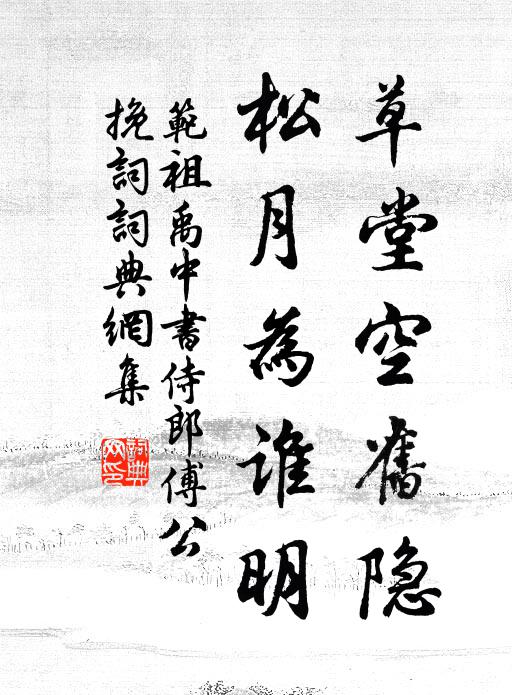 草堂空舊隐
松月為谁明
範祖禹中書侍郎傅公
挽詞詞典網集
詞典
网印